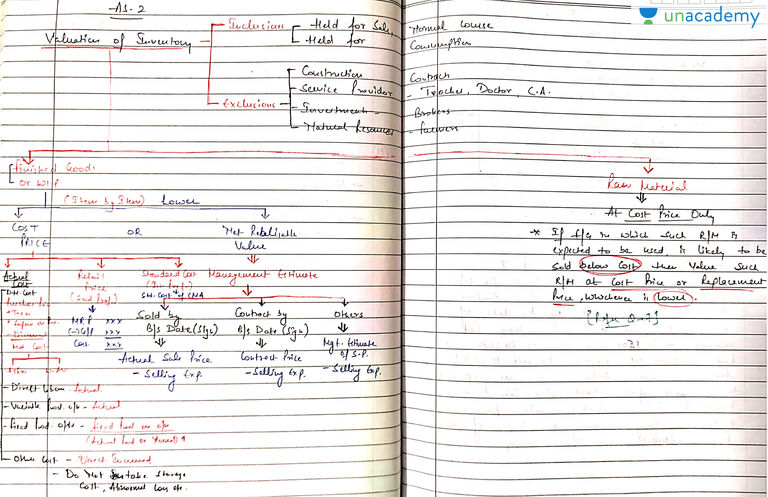 AS-2
unacademy
Valuation of Inventory
Inclusions
Held for Sale, Normal Course
Held for Consumption
Exclusions
Construction Contract
Service Provider - Teacher, Doctor, C.A.
Investment - Brokers
Natural Resources - farmers
finished Goods
or WIP
(Item by Item) Lower
COST
PRICE
OR
Net Realisable
Value
Actual
Cost
Retail
Price
Standard Cost
Management Estimate
D.M. Cost
MRP xxx
(-) G/P xxx
Cost xxx
Sold by
B/S Date (Sign)
Actual Sale Price
- Selling Exp.
Contract by
B/S Date (Sign)
Contract Price
- Selling Exp.
Others
Mgt. Estimate
of S.P.
- Selling Exp.
- Direct Labour - Actual
- Variable Prod. o/h - Actual
- Fixed Prod. o/h -
- Other Cost - Direct Incurred
- Do Not Include Storage
Cost, Abnormal Loss etc.
Raw Material
At Cost Price Only
* If f/g in which such R/M is
expected to be used, is likely to be
Sold below Cost then Value Such
R/M at Cost Price or Replacement
Price, whichever is lower.